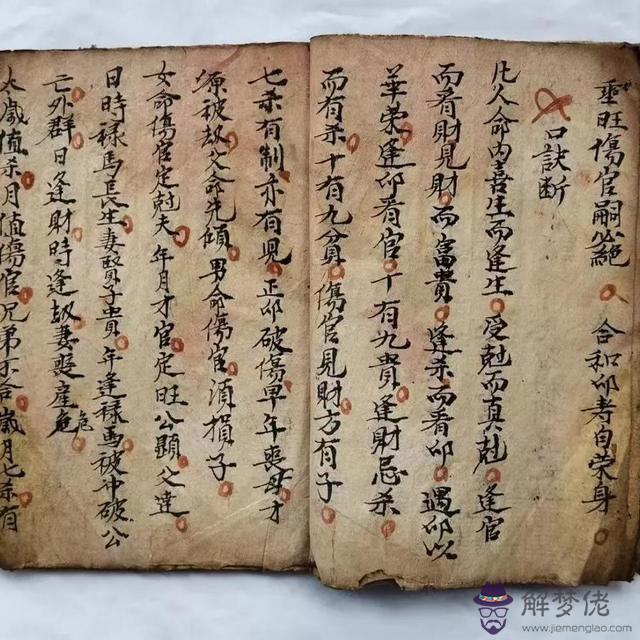 重旺傷官嗣必絕。合和印者自荣身。
口訣断
凡人命内喜生而逢生。受尅而真尅。逢官
而看財見財而富貴。逢杀而看印。遇印以
華荣逢印看官。十有九貴逢財忌杀
而有杀十有九貧。傷官見財方有子。
七杀有制亦有児。正印破傷早年喪母才
源被劫父命先傾。男命傷官湏損子。
女命傷官定尅夫。年月才官定旺公顕父達。
日時禄馬長生妻賢子貴。年逢禄馬被冲破公
亡外群。日逢財時逢劫妻喪産危。
危
太歲值杀月值傷官兄弟不合。歲月七杀有
解梦佬
www.jiemenglao.com